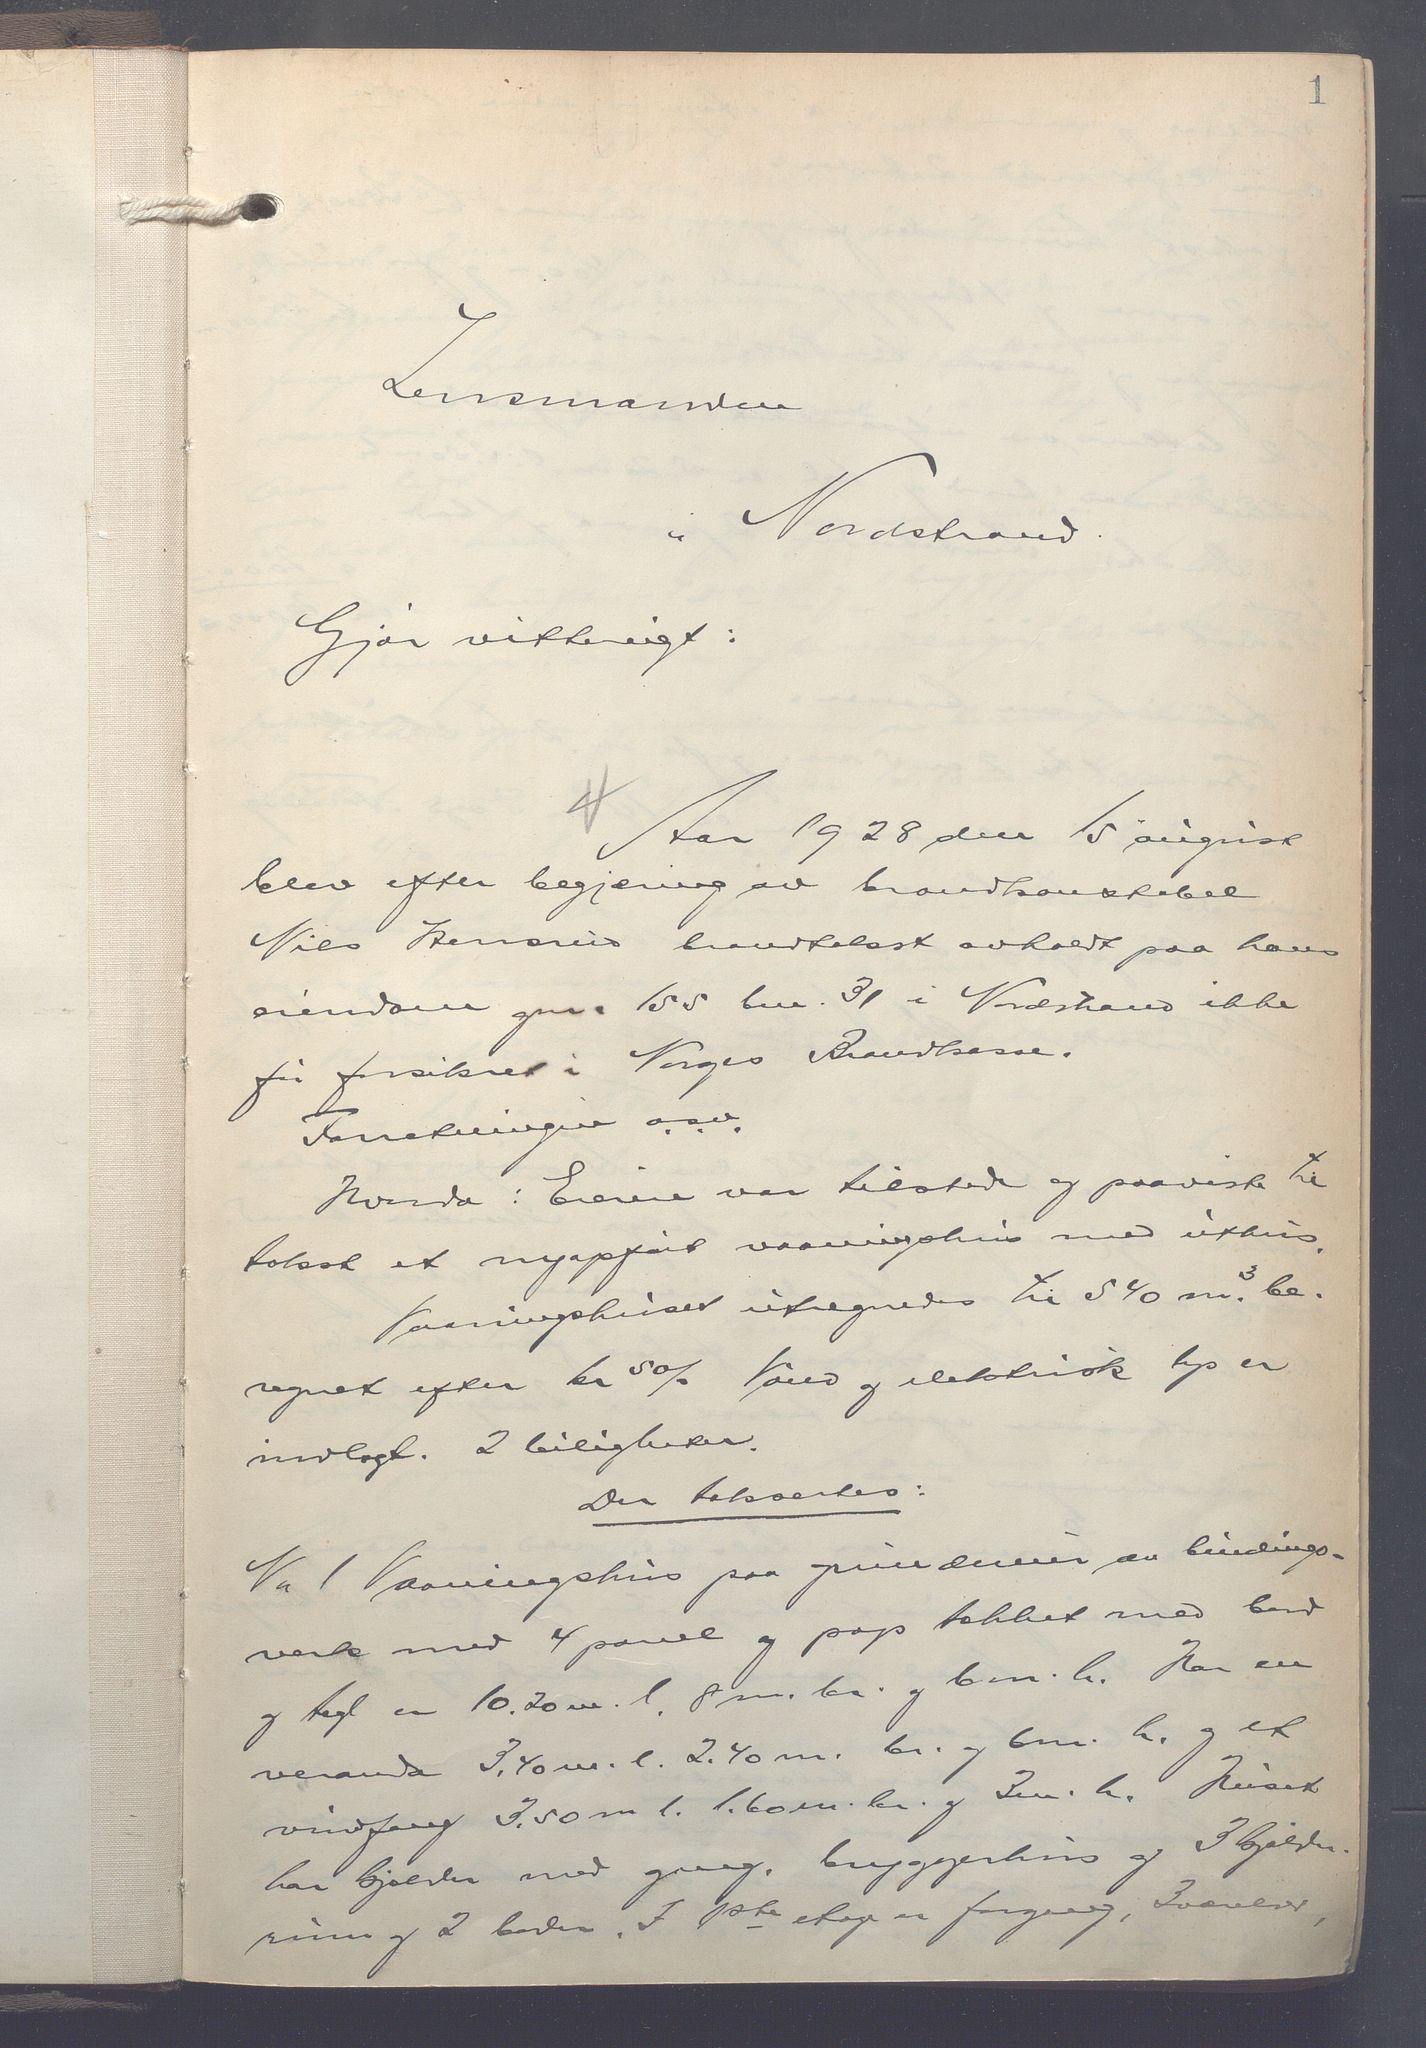 1
Lensmanden
i Nordstrand.
Gjør vitterligt:
Aar 1928 den 15 august
blev efter begjæring av brandkonstabel
Nils brandtakst avholdt paa hans
eiendom gnr. 155 bnr. 31 i Nordstrand ikke
før forsikret i Norges Brandkasse.
Forretningen o.s.v.
Hvorda: Eieren var tilstede og paaviste til
takst et nyopført vaaningshus med uthus.
Vaaningshuset utregnedes til 540 m.³ be-
regnet efter kr 50/. Vand og elektrisk lys er
indlagt. 2 leiligheter.
Der takseertes:
No 1 Vaaningshus paa grundmur av bindings-
verk med 4 panel og pap tekket med bord
og tegl er 10.20 m. l. 8 m. br. og 6 m. h. Har en
veranda 3.40 m. l. 2.40 m. br. og 6 m. h. og et
vindfang 3.50 m l. 1.60 m. br. og 3 m. h. Huset
har kjelder med gang, bryggerhus og 3 kjelder-
rum og 2 boder. I 1ste etage er forgang, 3 værelser,